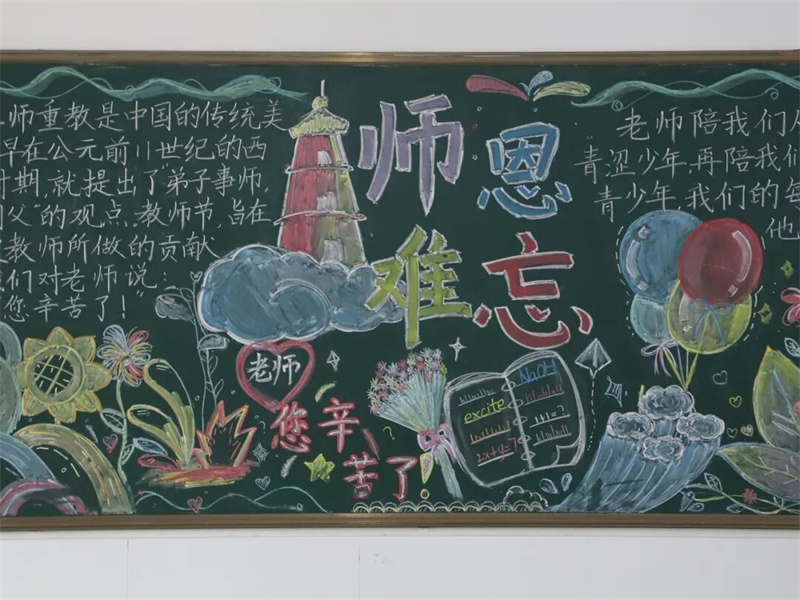 师重教是中国的传统美
早在公元前11世纪的西
时期,就提出了"弟子事师,
父"的观点.教师节,旨在
教师所做的贡献
们对老师说:
您辛苦了!"
师恩
难忘
老师陪我们从
青涩少年,再陪我们
青少年,我们的每
他
老师
您辛
苦了!
NaOH
excite
1+1=?
2x+y=7